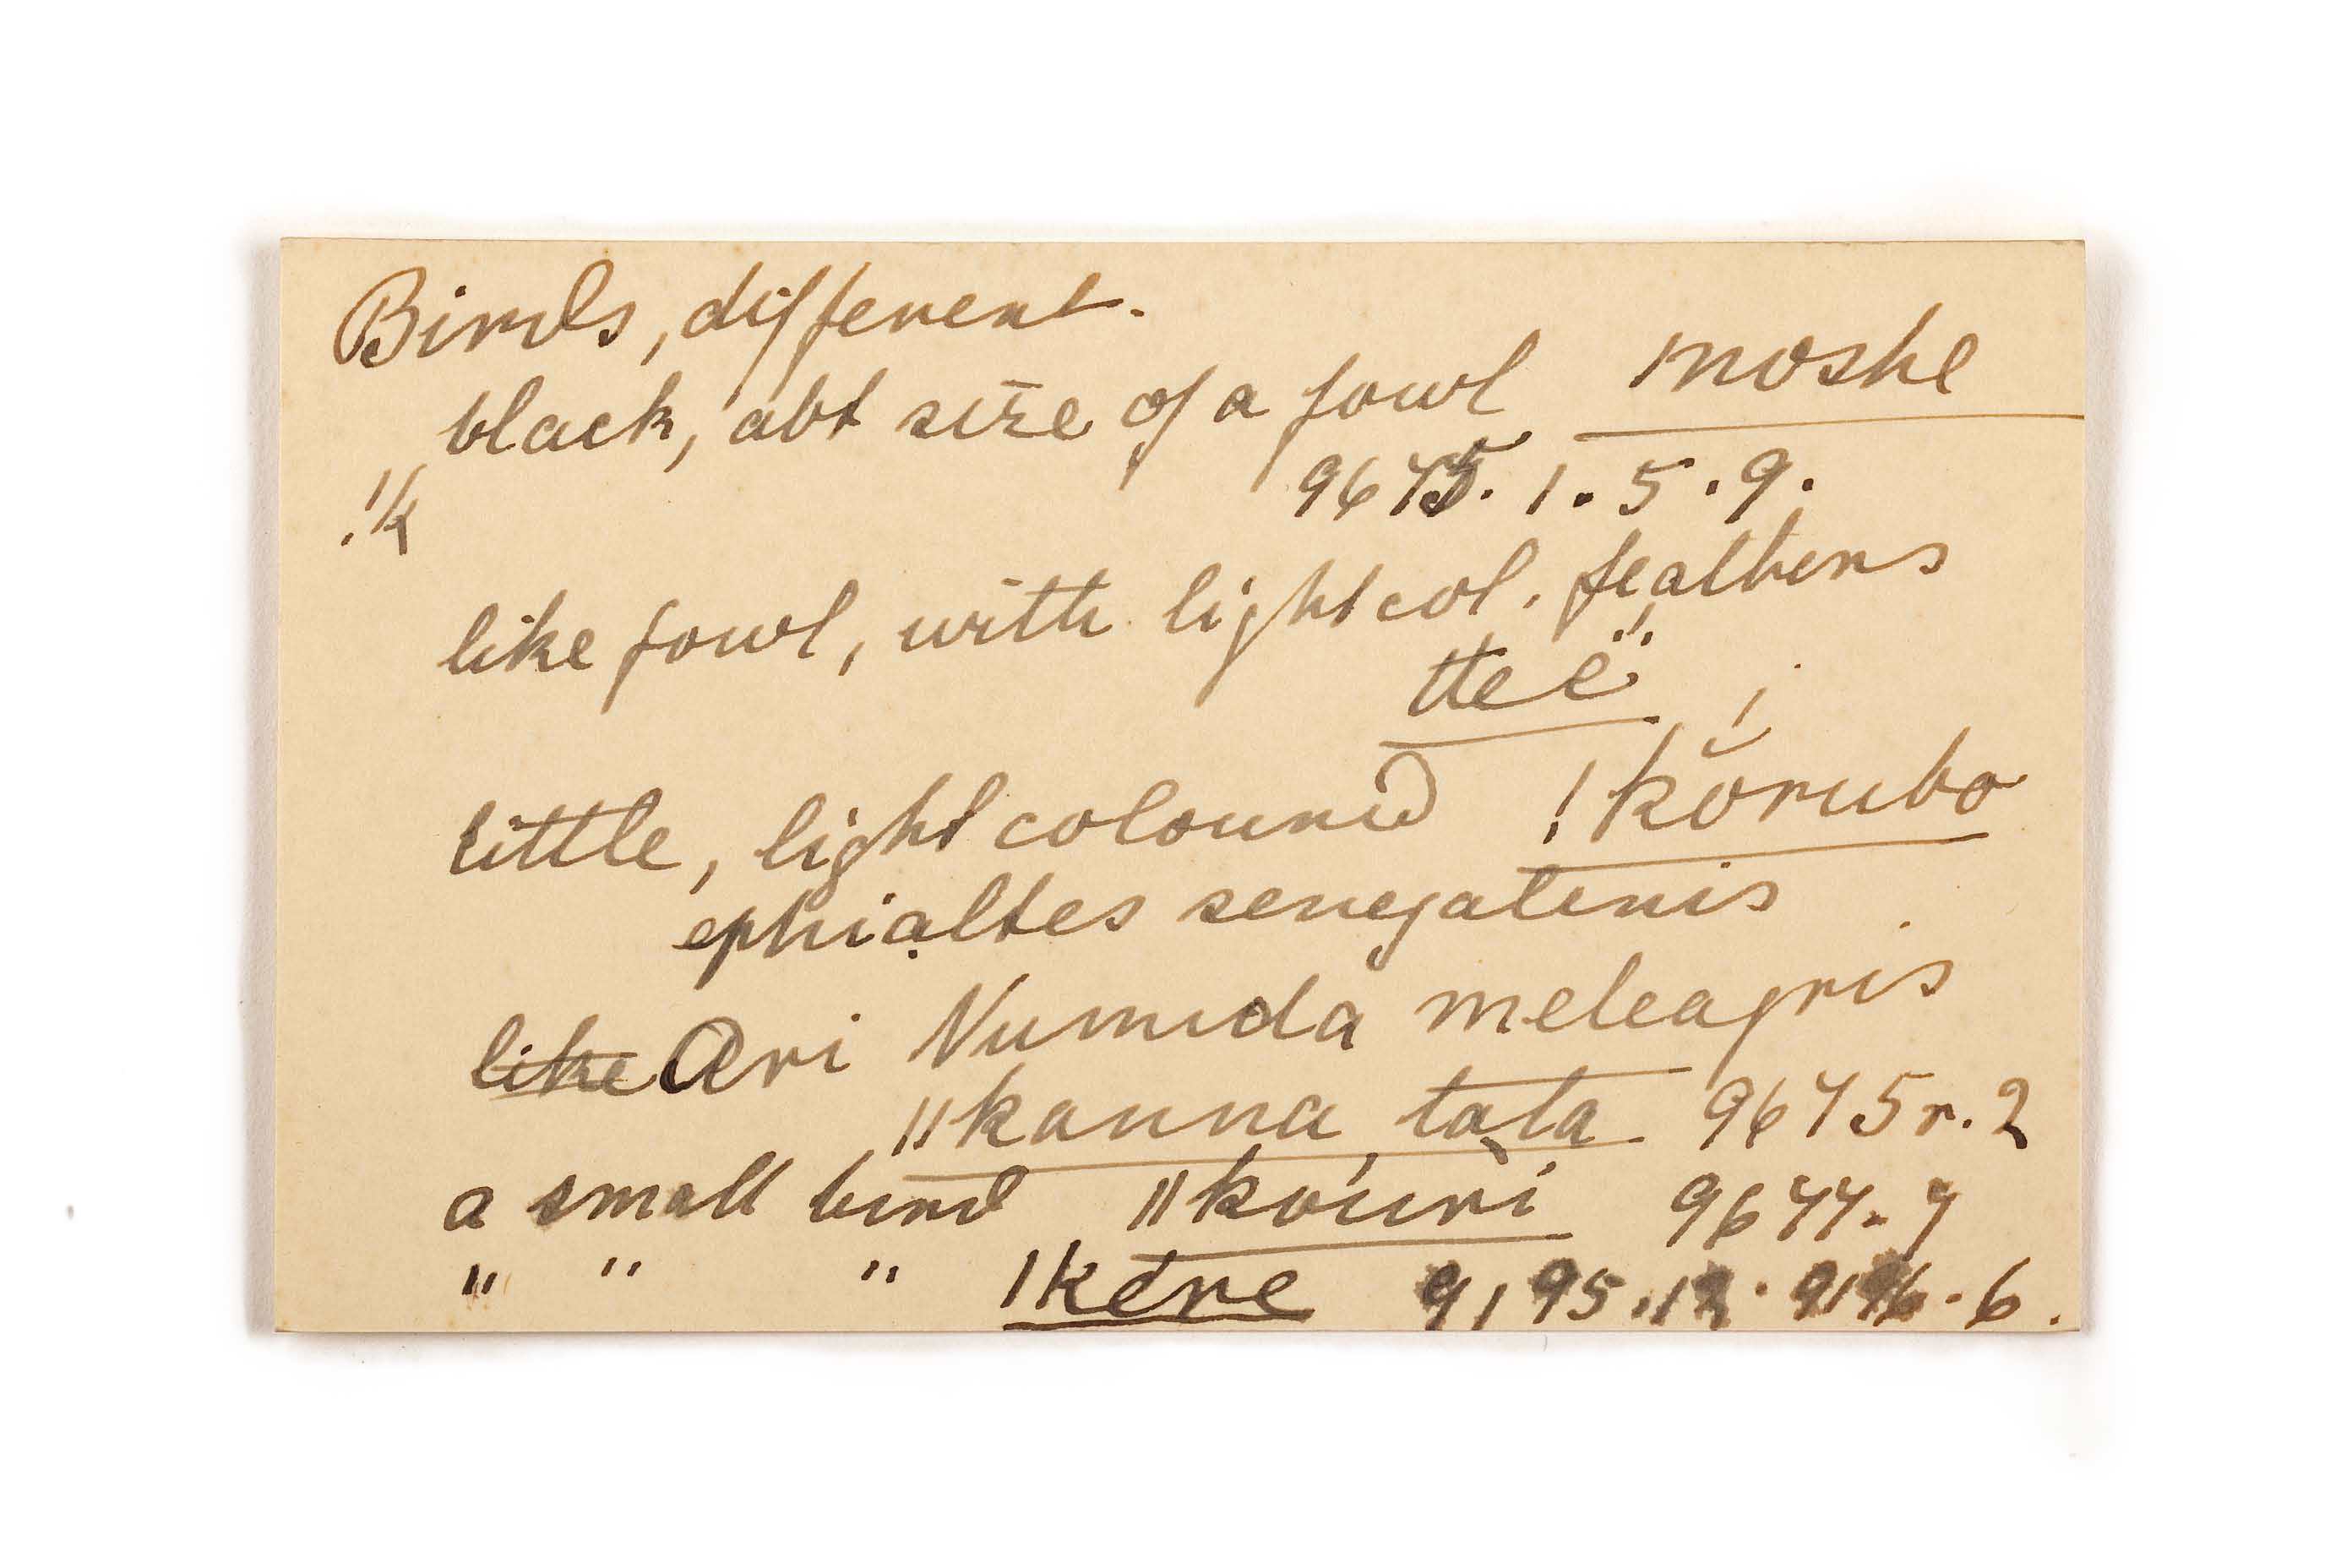 Birds, different.
black, abt size of a fowl moshe
9675. 1. 5. 9.
!k
like fowl, with light col. feathers
ttee
little, light coloured !kŏrubo
ephialtes senegalenis
like Ori Numida meleagris
ǁkanna tata 9675 r. 2
a small bird ǁkouri 9677. 7
" " " ǀkere 9195.12. 9196.6.